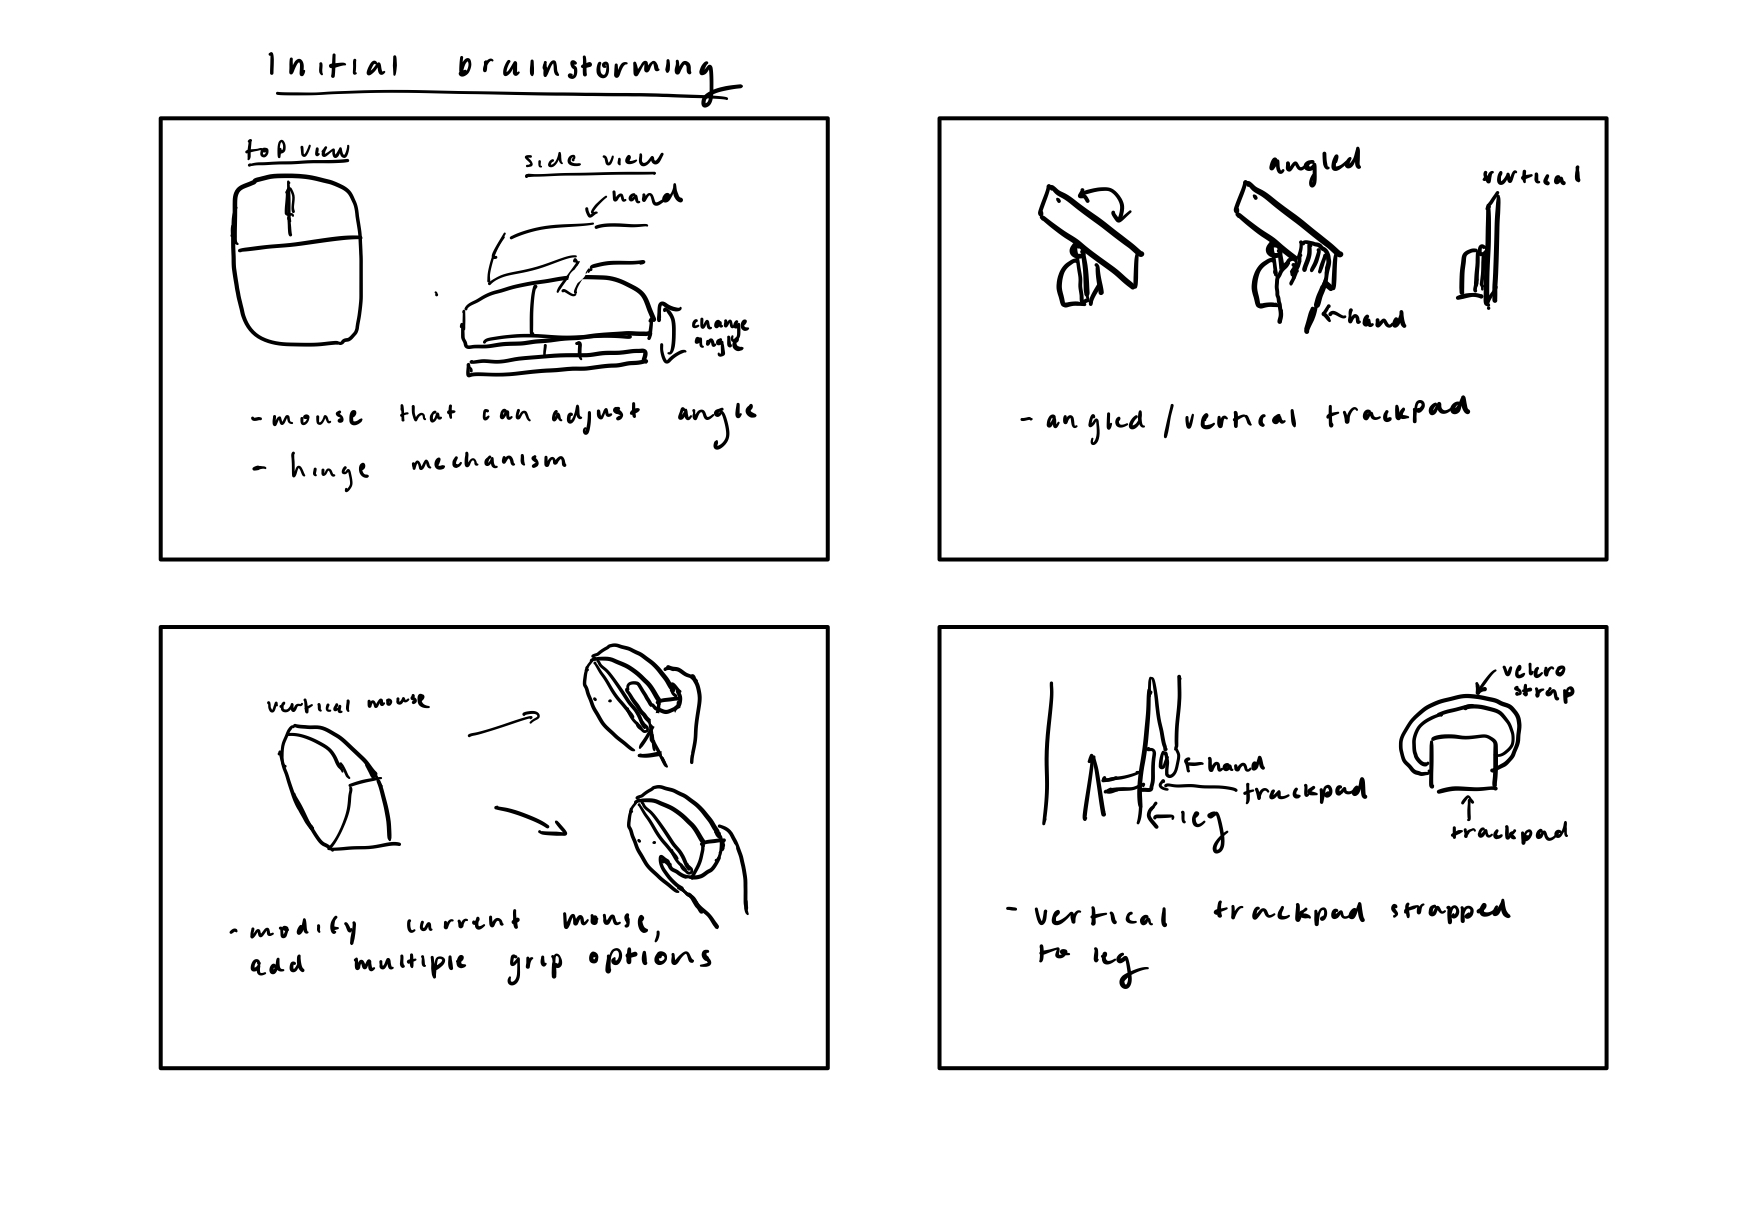 Initial brainstorming
top view
side view
hand
change
angle
- mouse that can adjust angle
- hinge mechanism
angled
vertical
hand
- angled / vertical trackpad
vertical mouse
- modify current mouse,
add multiple grip options
velcro
strap
hand
trackpad
leg
trackpad
- vertical trackpad strapped
to leg